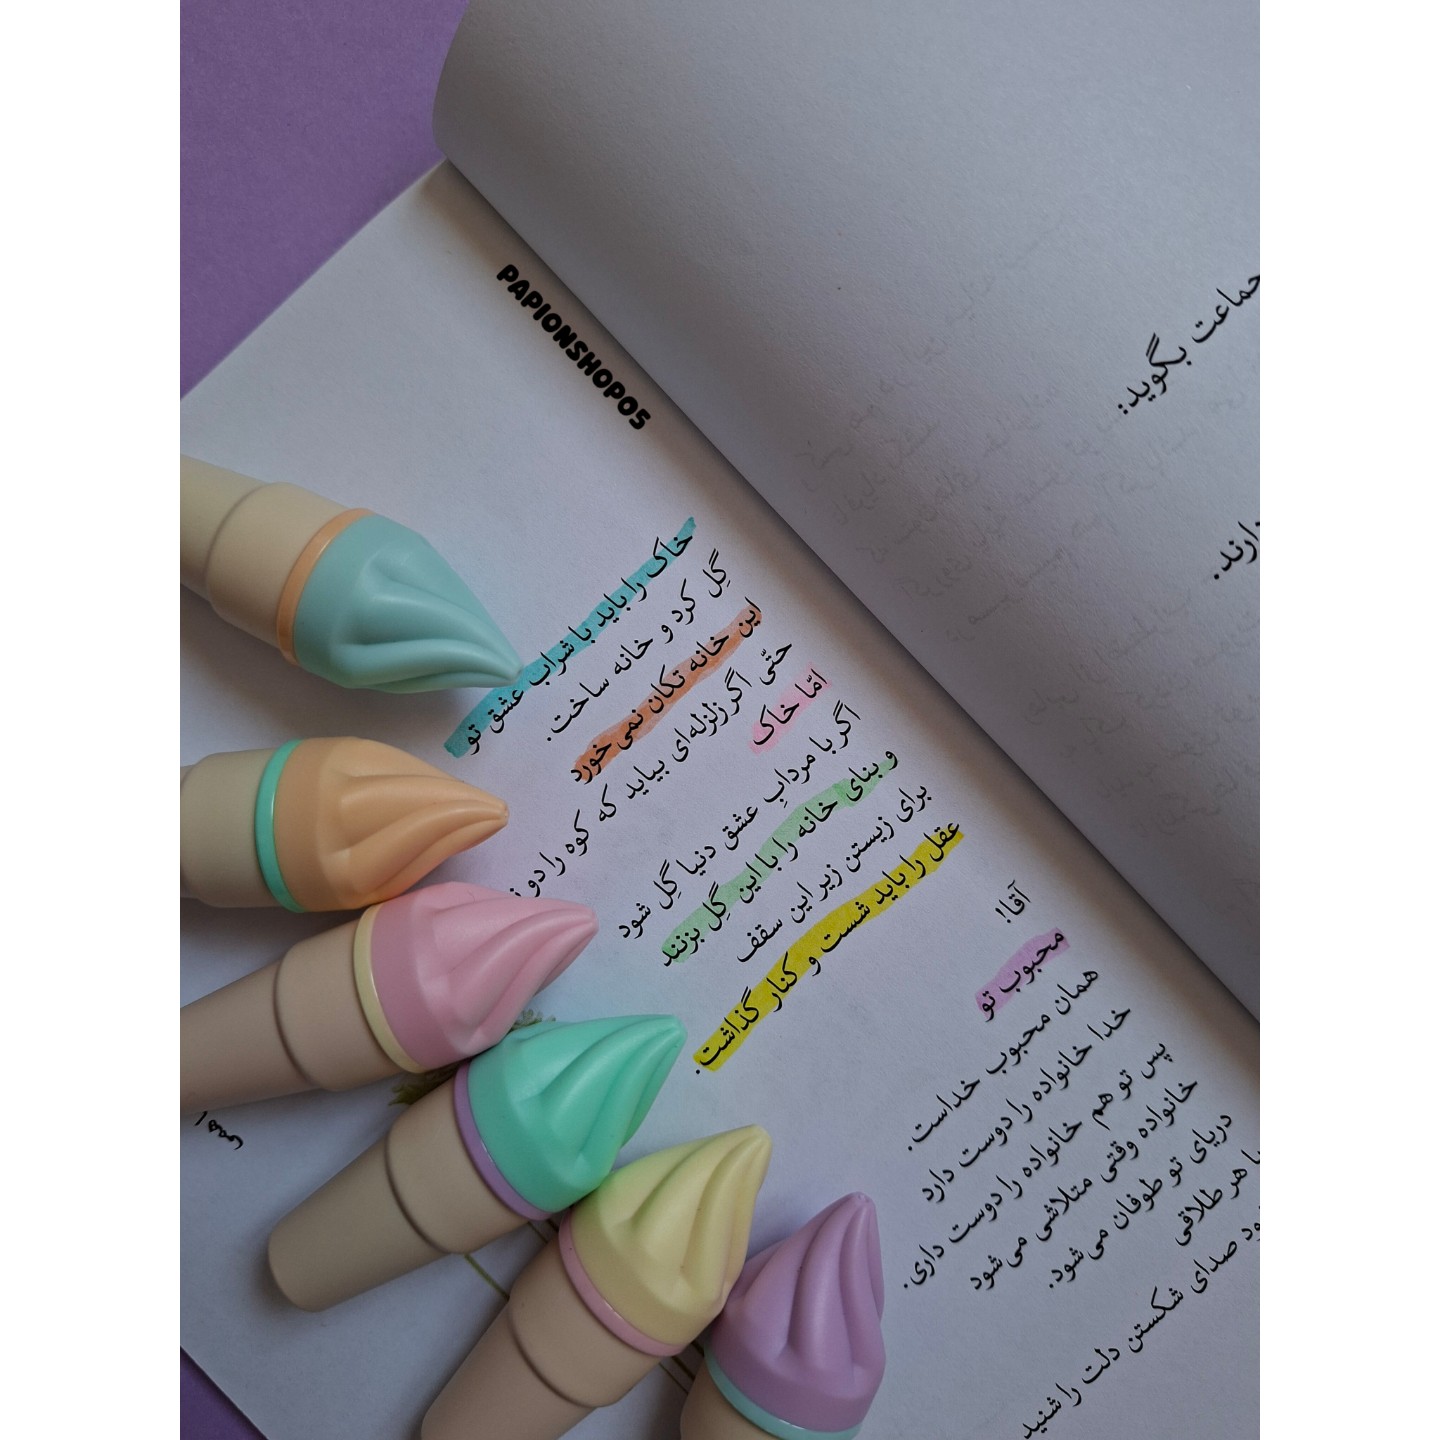 PAPIONSHOP05
جماعت بگوید:
دارند.
خاک را باید با شراب عشق تو
گِل کرد و خانه ساخت.
این خانه تکان نمی‌خورد
حتّی اگر زلزله‌ای بیاید که کوه را دو
امّا خاک
اگر با مردابِ عشق دنیا گِل شود
و بنای خانه را با این گِل بزنند
برای زیستن زیر این سقف
عقل را باید شست و کنار گذاشت.
آقا!
محبوب تو
همان محبوب خداست.
خدا خانواده را دوست دارد
پس تو هم خانواده را دوست داری.
خانواده وقتی متلاشی می‌شود
دریای تو طوفان می‌شود.
با هر طلاقی
صدای شکستن دلت را شنید